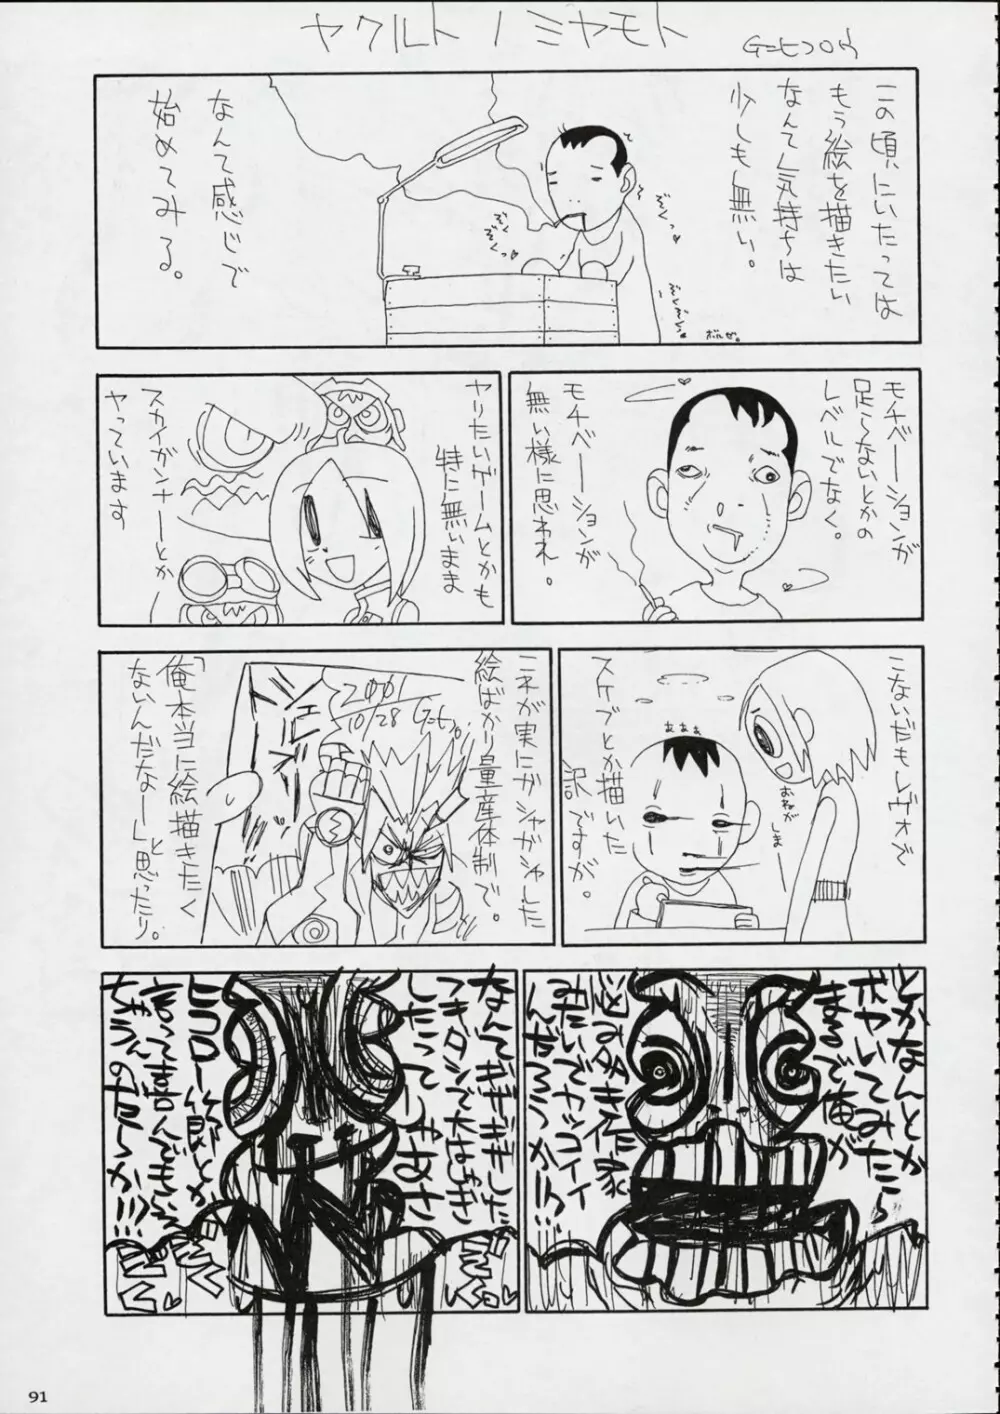 ヤクルトノミヤモト
この頃にいたっては
もう絵を描きたい
なんて気持ちは
少しも無い。
ぞくっ
ぞくぞくっ
ぞくぞくっ
ボルゼ。
なんて感じで
始めてみる。
モチベーションが
足らないとかの
レベルでなく。
モチベーションが
無い様に思われ。
ヤりたいゲームとかも
特に無いまま
スカイガンナーとか
ヤっています
こないだもレヴォで
スケブとか描いた
訳ですが。
ああぁ
おねが
しまー
これが実にガシャガシャした
絵ばかり量産体制で。
2001
10/28
「俺本当に絵描きたく
ないんだなー」と
思ったり。
とかなんとか
ボヤいてみたら
まるで俺が
悩み多き作家
みたいでカッコイイ
んだろうか!!?
なんでギギギした
つきダシで大はしゃぎ
したって
ヒコロー節とか
言って喜んでる
ちゃうのだろうか!!?